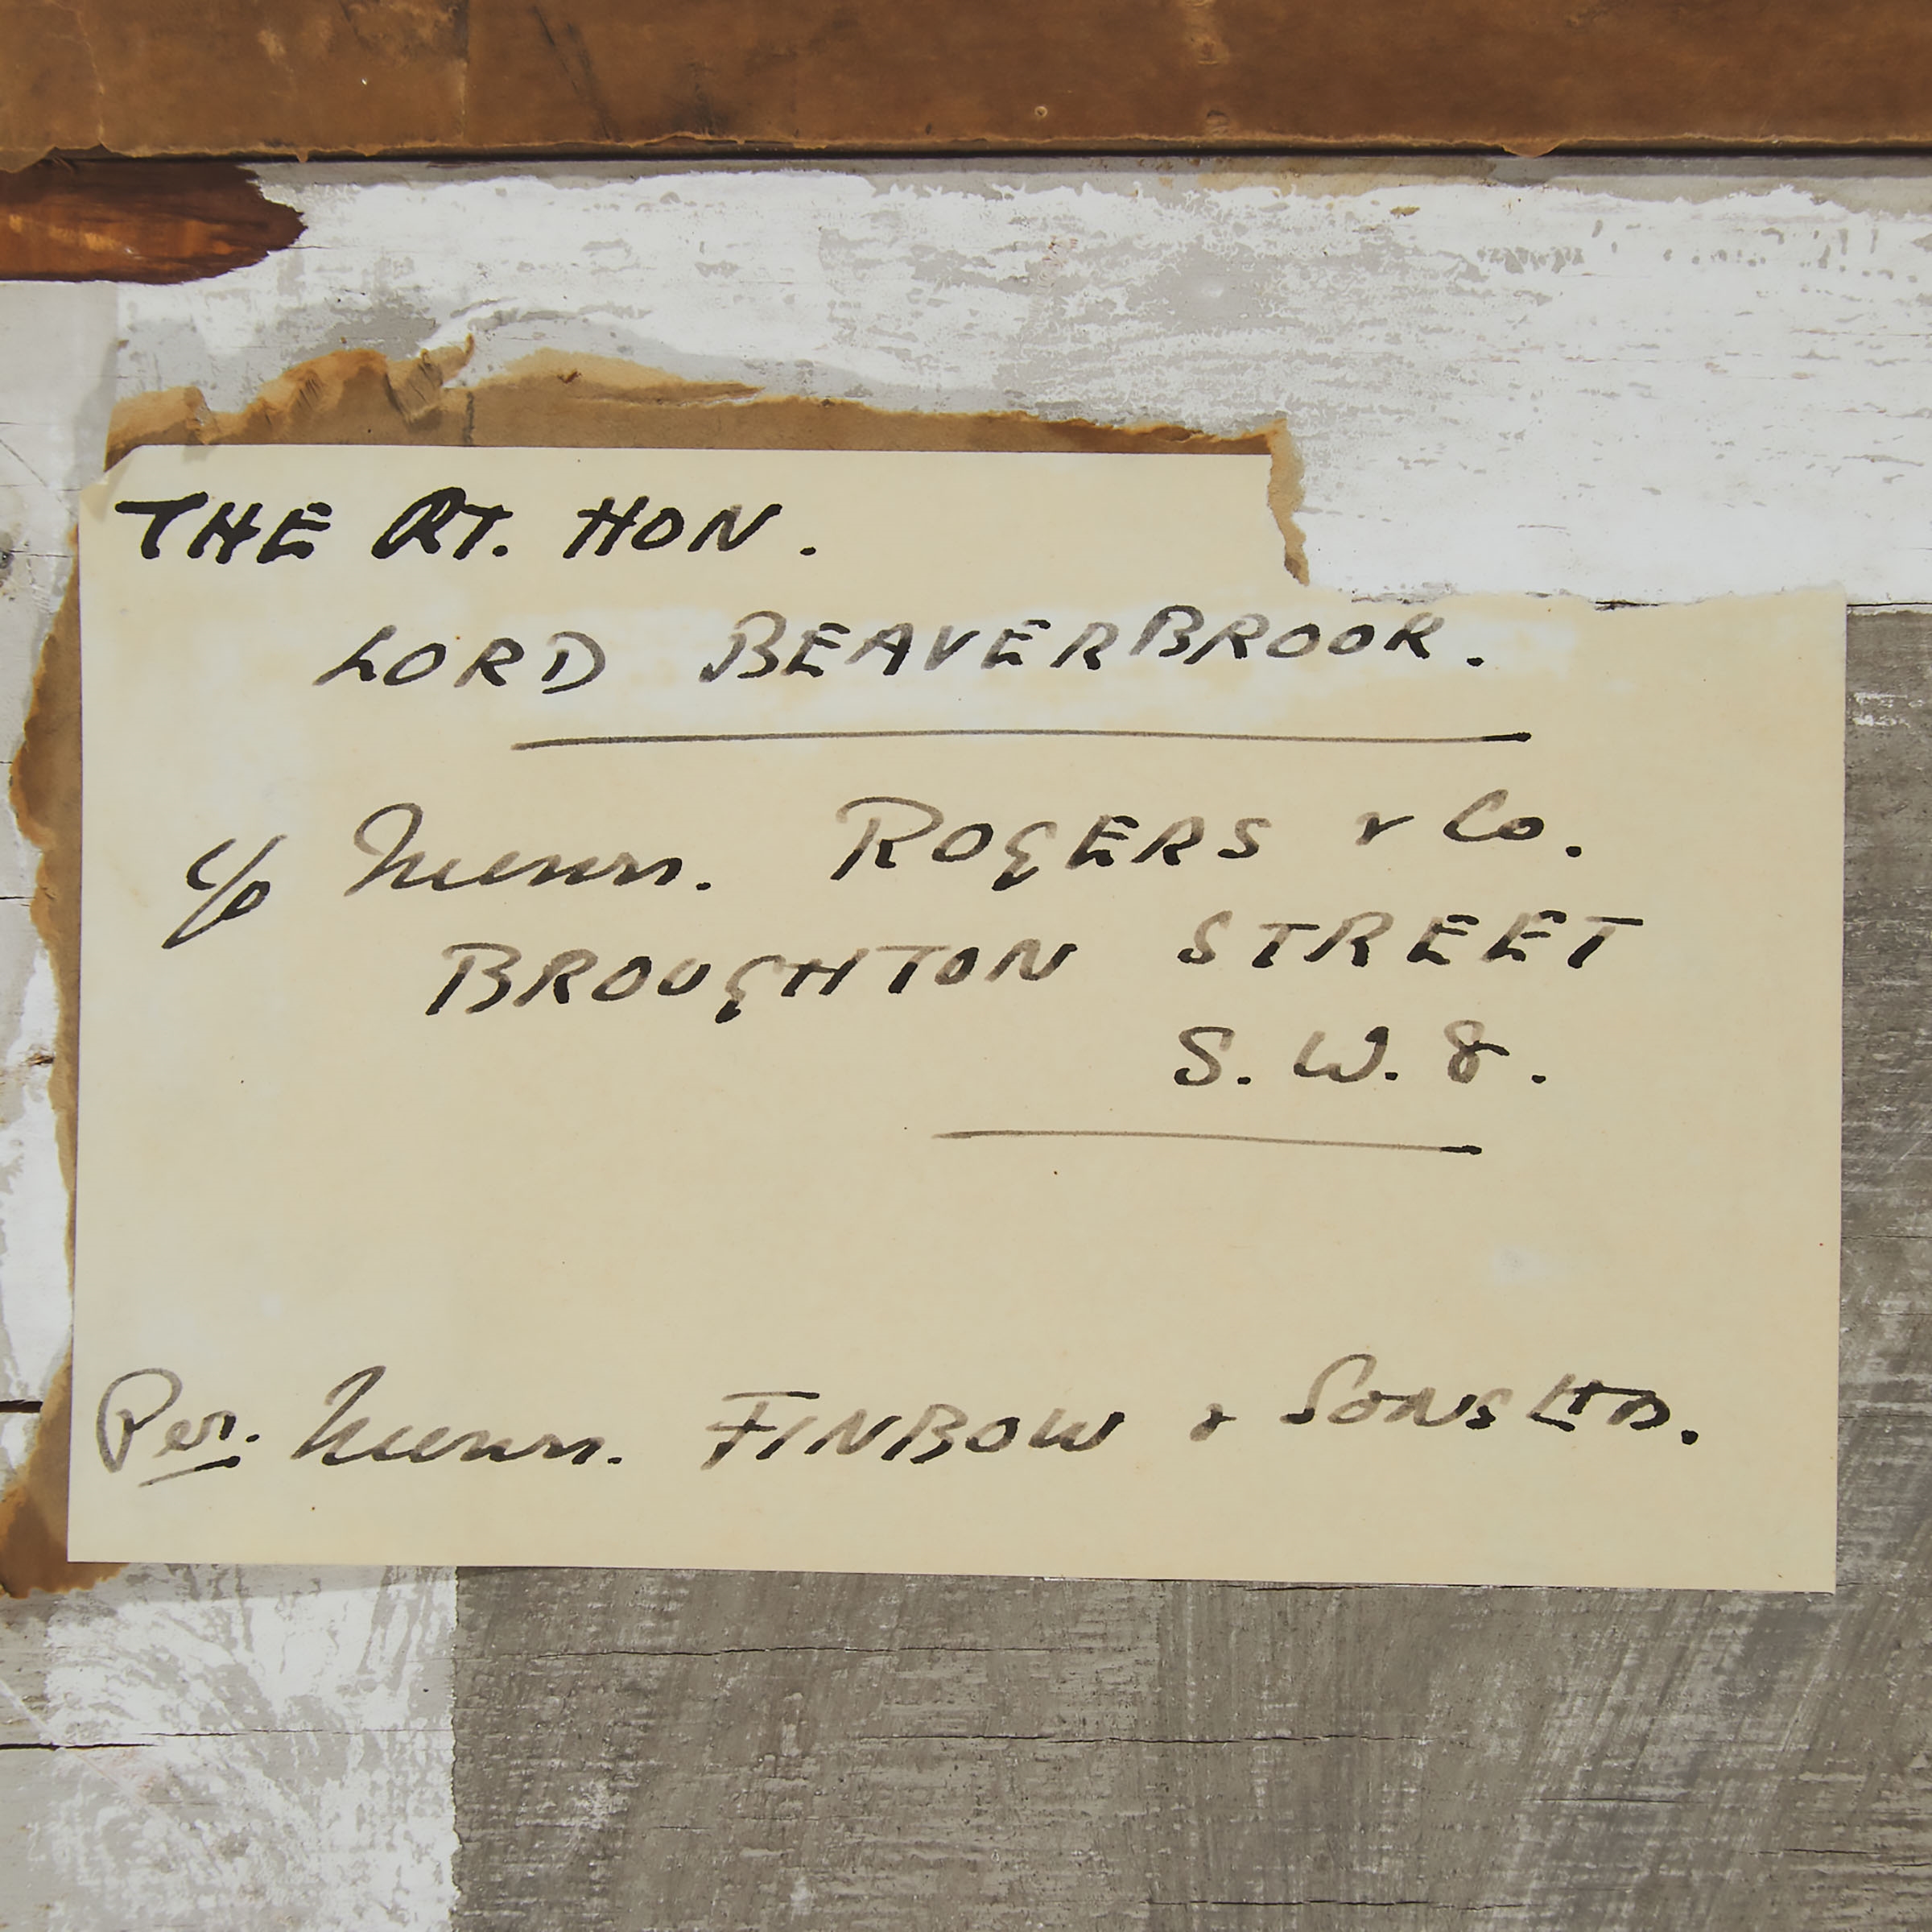 THE RT. HON.
LORD BEAVERBROOK.
c/o Messrs. ROGERS & Co.
BROUGHTON STREET
S. W. 8.
Per. Messrs. FINBOW & SONS LTD.